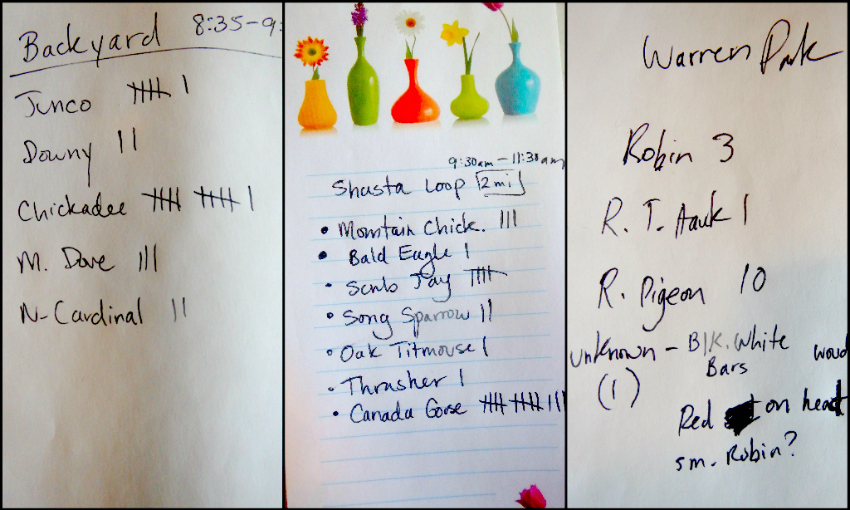 Backyard 8:35-9:
Junco 卌 |
Downy ||
Chickadee 卌 卌 |
M. Dove |||
N-Cardinal ||
9:30am-11:30am
Shasta Loop 2mi
• Mountain Chick. |||
• Bald Eagle |
• Scrub Jay 卌
• Song Sparrow ||
• Oak Titmouse |
• Thrasher |
• Canada Goose 卌 卌 |||
Warren Park
Robin 3
R. T. Hawk 1
R. Pigeon 10
unknown - Blk. White woud
(1) Bars
Red on head
sm. Robin?